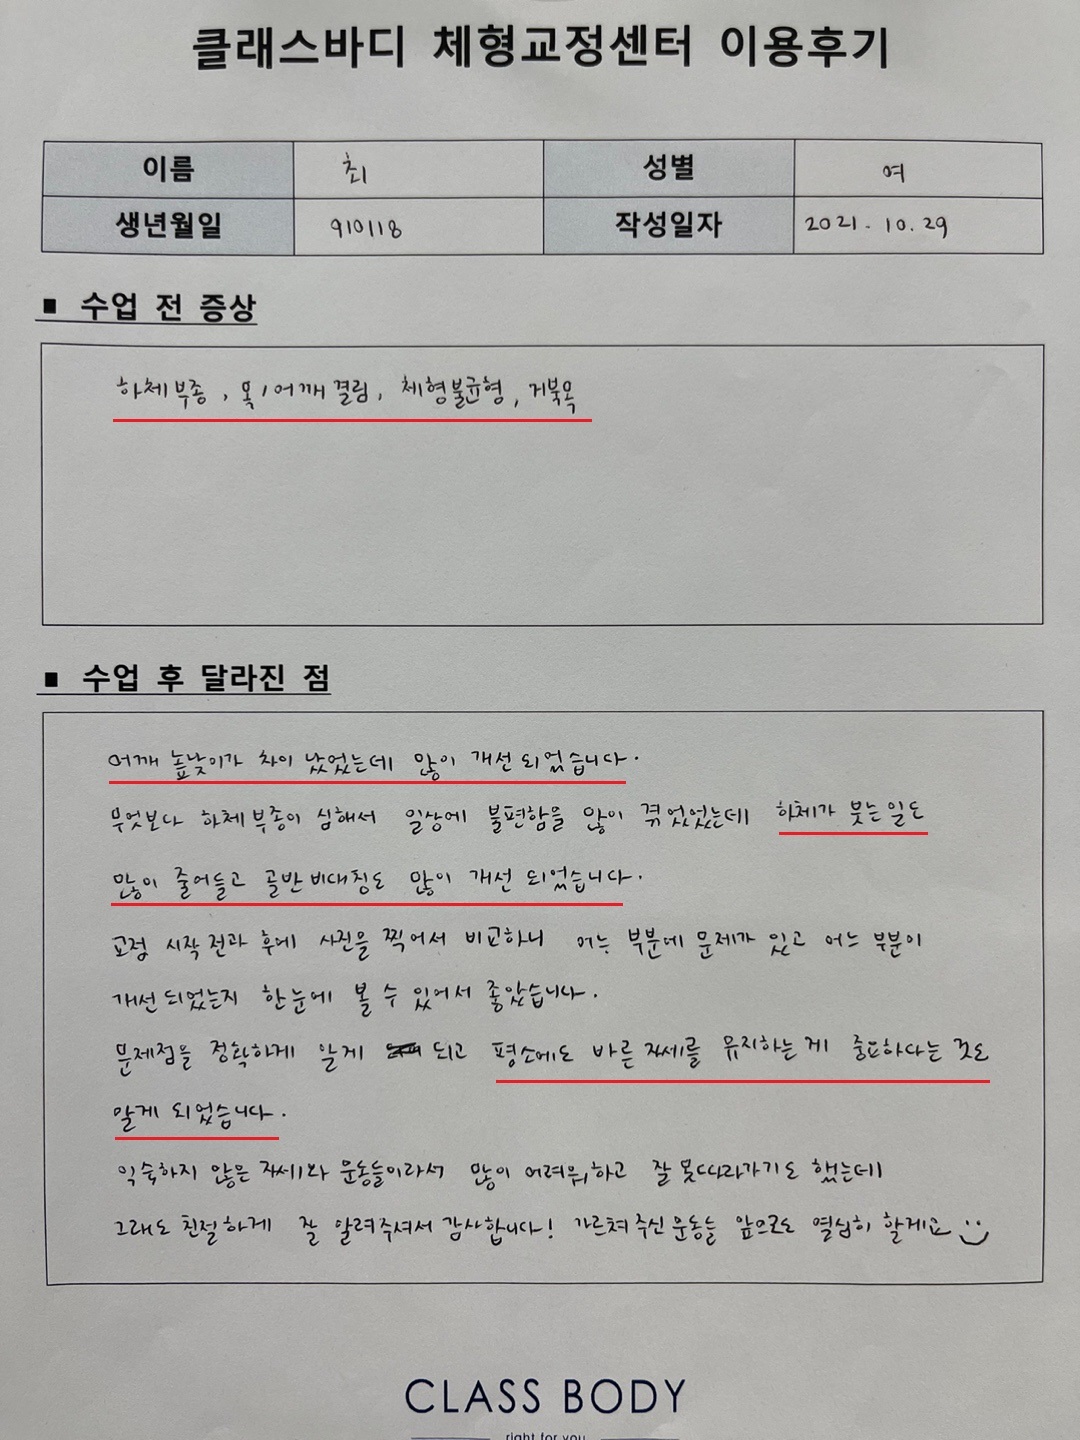 클래스바디 체형교정센터 이용후기
이름 최 성별 여
생년월일 910118 작성일자 2021. 10. 29
■ 수업 전 증상
하체부종, 목/어깨결림, 체형불균형, 거북목
■ 수업 후 달라진 점
어깨 높낮이가 차이 났었는데 많이 개선되었습니다.
무엇보다 하체부종이 심해서 일상에 불편함을 많이 겪었었는데 하체가 붓는일도
많이 줄어들고 골반비대칭도 많이 개선 되었습니다.
교정 시작전과 후에 사진을 찍어서 비교하니 어느 부분에 문제가 있고 어느 부분이
개선되었는지 한눈에 볼 수 있어서 좋았습니다.
문제점을 정확하게 알게 되고 평소에도 바른 자세를 유지하는게 중요하다는 것도
알게 되었습니다.
익숙하지 않은 자세와 운동들이라서 많이 어려워하고 잘 못따라가기도 했는데
그래도 친절하게 잘 알려주셔서 감사합니다! 가르쳐주신운동들 앞으로도 열심히 할게요
CLASS BODY
right for you